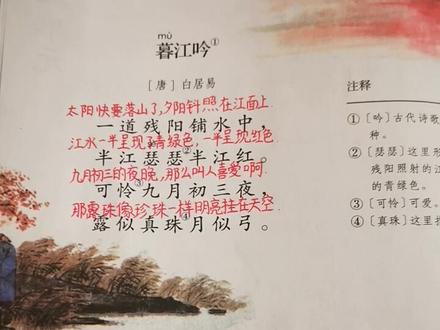 mù
暮江吟①
〔唐〕白居易
太阳快要落山了,夕阳斜照在江面上.
一道残阳铺水中,
江水一半呈现了青绿色,一半呈现红色.
半江瑟瑟②半江红。
九月初三的夜晚,那么叫人喜爱啊.
可怜③九月初三夜,
那露珠像珍珠一样明亮挂在天空.
露似真珠④月似弓。
注释
①〔吟〕古代诗歌
种。
②〔瑟瑟〕这里形
残阳照射的江
的青绿色。
③〔可怜〕可爱。
④〔真珠〕这里指